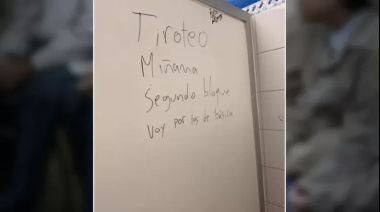 Tiroteo
Miñana
Segundo bloque
Voy por los de